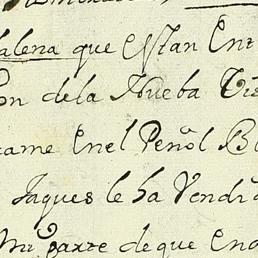 alena que estan ent
on dela Nueba
came Enel Peñol B
Jaques le ha Vendi
mi parte de que en